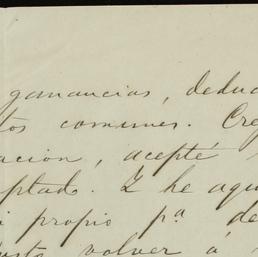 ganancias, deduc
tos comunes. Cre
ación, acepté
ptado. Y he aqu
i propio pª de
volver á